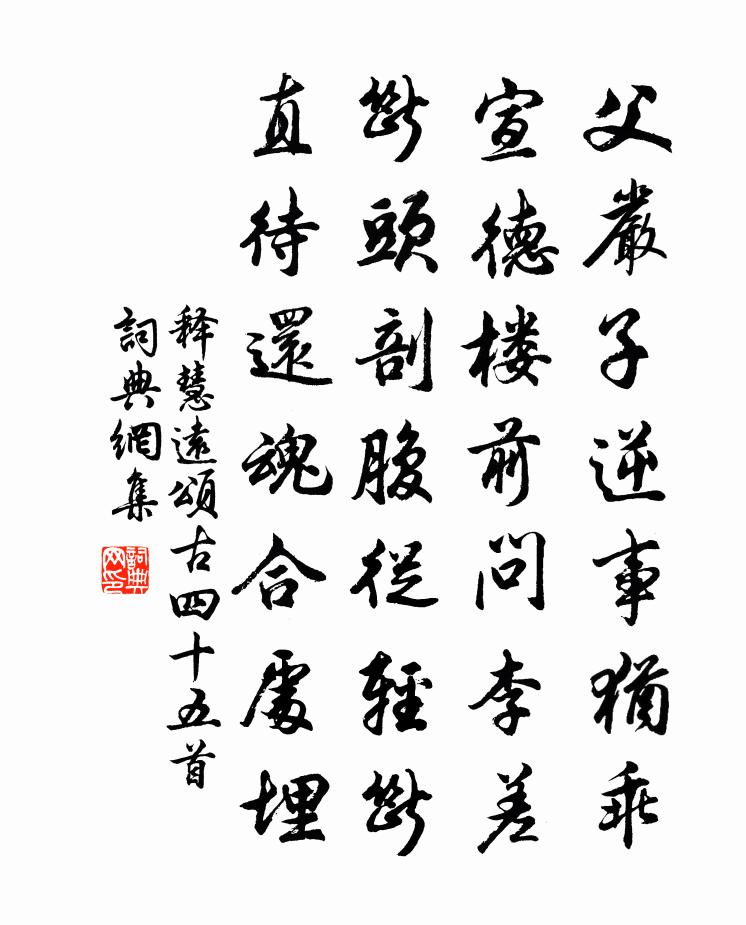 父嚴子逆事猶乖
宣德楼前問李差
斷頭剖腹從輕斷
直待還魂合處埋
释慧遠頌古四十五首
詞典網集
詞典网印